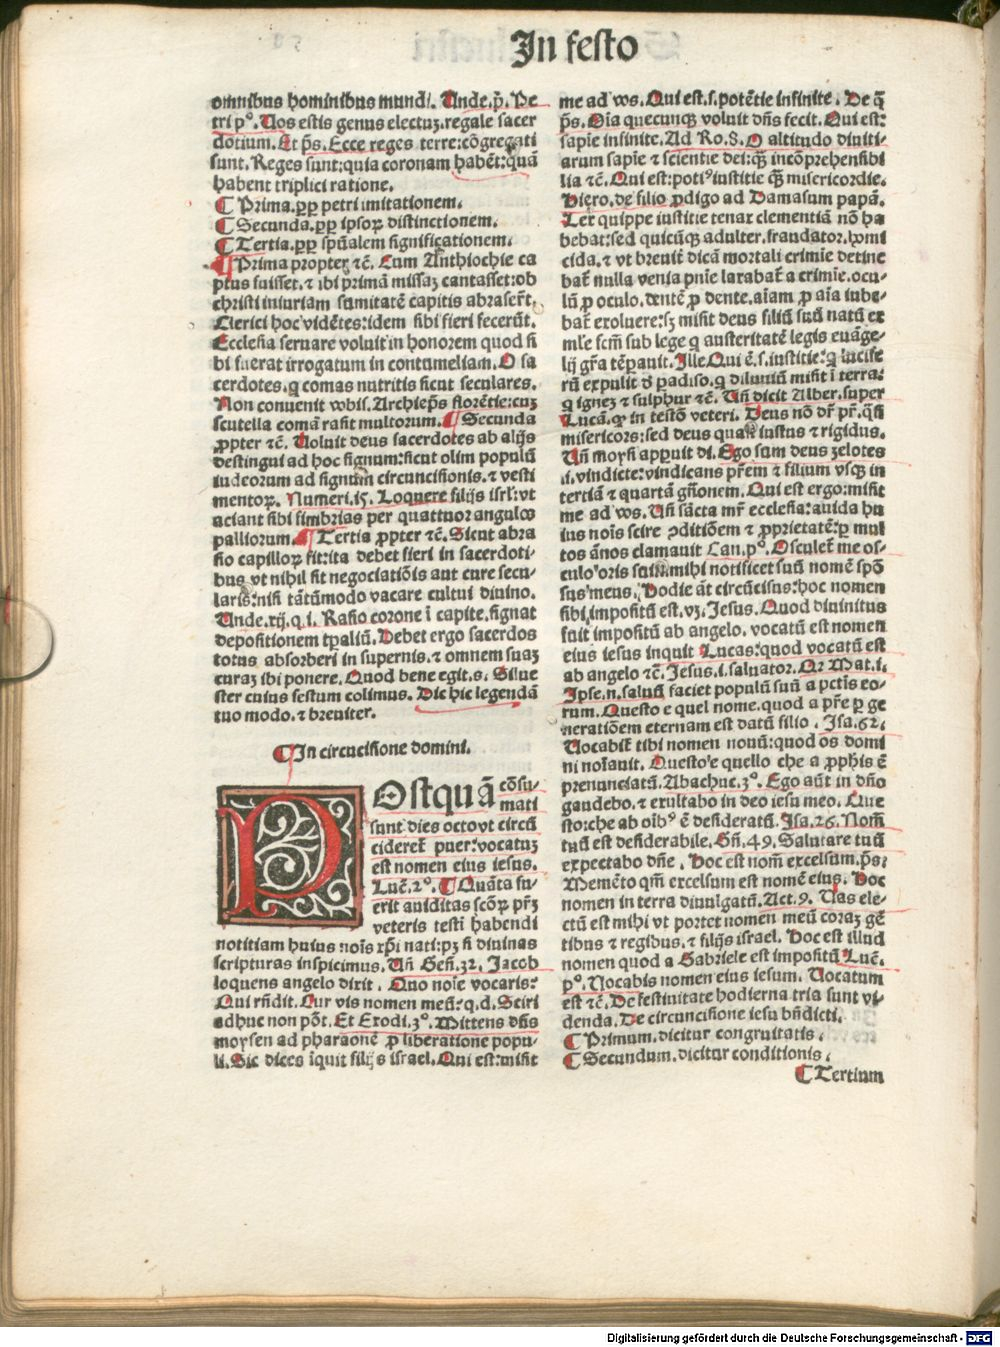 In festo
omnibus hominibus mundi. Unde.p̃. Pe
tri pº. Uos estis genus electuꝫ.regale sacer
dotium. Et p̃s. Ecce reges terre:cõgregati
sunt. Reges sunt:quia coronam habẽt:quã
habent triplici ratione.
¶ Prima.ꝓpꝑ petri imitationem.
¶ Secunda.ꝓpꝑ ipsoꝝ distinctionem.
¶ Tertia.ꝓpꝑ spũalem significationem.
¶ Prima propter ⁊c̃. Cum Anthiochie ca
ptus fuisset.⁊ ibi primã missaꝫ cantasset:ob
christi iniuriam sumitatẽ capitis abraserũt.
Clerici hoc vidẽtes:idem sibi fieri fecerũt.
Ecclesia seruare voluit in honorem quod si
bi fuerat irrogatum in contumeliam. O sa
cerdotes.q comas nutritis sicut seculares.
Non conuenit vobis. Archiep̃s florẽtie:cuꝫ
scutella comã rasit multorum. ¶ Secunda
ꝓpter ⁊c̃. Uoluit deus sacerdotes ab alijs
destingui ad hoc signum:sicut olim populũ
iudeorum ad signum circuncisionis.⁊ vesti
mentoꝝ. Numeri.15. Loquere filijs isrl̃:vt
faciant sibi fimbrias per quattuor angulos
palliorum. ¶ Tertia ꝓpter ⁊c̃. Sicut abra
sio capilloꝝ fit:ita debet fieri in sacerdoti-
bus vt nihil sit negociatiõis aut cure secu-
laris:nisi tãtũmodo vacare cultui diuino.
Unde.xij.q.i. Rasio corone ĩ capite.signat
depositionem tp̃aliũ. Debet ergo sacerdos
totus absorberi in supernis.⁊ omnem suaꝫ
curaꝫ ibi ponere. Quod bene egit.s. Silue
ster cuius festum colimus. Dic hic legendã
tuo modo.⁊ breuiter.
¶ In circũcisione domini.
POstquã cõsu-
mati
sunt dies octo vt circũ
cideret̃ puer:vocatuꝫ
est nomen eius iesus.
Luc̃.2º. ¶ Quãta fu-
erit auiditas scõꝝ pr̃ꝫ
veteris testi habendi
notitiam huius nois̃ xp̃i nati:pꝫ si diuinas
scripturas inspicimus. Uñ Geñ.32. Jacob
loquens angelo dixit. Quo noĩe vocaris?
Qui rñdit. Cur vis nomen meũ:q.d. Sciri
adhuc non põt. Et Exodi.3º. Mittens dñs
moysen ad pharaonẽ ꝓ liberatione popu-
li. Sic dices ĩquit filijs israel. Qui est:misit
me ad vos. Qui est.s.potẽtie infinite. De q̃
p̃s. Oĩa quecunqꝫ voluit dñs fecit. Qui est:
sapiẽ infinite. Ad Ro.8. O altitudo diuiti-
arum sapiẽ ⁊ scientie dei:qꝫ̃ incõprehensibi
lia ⁊c̃. Qui est:poti⁹ iustitie qꝫ̃ misericordie.
Hiero.de filio ꝓdigo ad Damasum papã.
Lex quippe iustitie tenax clementiã nõ ha
bebat:sed quicũqꝫ adulter.fraudator.homi
cida.⁊ vt breuit̃ dicã mortali crimĩe detine
bat̃ nulla venia pñie laxabat̃ a crimĩe.ocu-
lũ ꝓ oculo.dentẽ ꝓ dente.aĩam ꝓ aĩa iube-
bat̃ exoluere:sꝫ misit deus filiũ suũ natũ ex
ml̃e fcm̃ sub lege q austeritatẽ legis euãge-
lij gr̃a tẽpauit. Ille Qui ẽ.s.iustitie:q lucife
rũ expulit d̃ padiso.q diluuiũ misit ĩ terra:
q igneꝫ ⁊ sulphur ⁊c̃. Uñ dicit Alber.super
Lucã.qꝫ in testõ veteri. Deus nõ dr̃ pr̃.qsi
misericors:sed deus quasi iustus ⁊ rigidus.
Uñ moysi apꝑuit di. Ego sum deus zelotes
.i.vindicte:vindicans pr̃em ⁊ filium vsqꝫ in
tertiã ⁊ quartã gñonem. Qui est ergo:misit
me ad vos. Uñ sãcta mr̃ ecclesia:auida hu
ius nois̃ scire ↄditiõem ⁊ ꝓprietatẽ:ꝑ mul
tos ãnos clamauit Can.pº. Osculet̃ me os-
culo oris sui.i.mihi notificet suũ nomẽ spõ
sus meus. Hodie aũt circũcisus:hoc nomen
sibi impositũ est.vꝫ. Jesus. Quod diuinitus
fuit impositũ ab angelo. vocatũ est nomen
eius iesus inquit Lucas:quod vocatũ est
ab angelo ⁊c̃. Jesus.i.saluator. Qꝛ Mat.i.
Ipse.n.saluũ faciet populũ suũ a pctĩs eo-
rum. Questo e quel nome.quod a pr̃e ꝑ ge
neratiõem eternam est datũ filio. Isa.62.
Uocabit̃ tibi nomen nouũ:quod os domi
ni noĩauit. Questo'e quello che a ꝓphis̃ ẽ
prenunciatũ. Abachuc.3º. Ego aũt in dño
gaudebo.⁊ exultabo in deo iesu meo. Que
sto:che ab oĩb⁹ ẽ desideratũ. Isa.26. Nom̃
tuũ est desiderabile. Geñ.49. Salutare tuũ
expectabo dñe. Hoc est nom̃ excelsum.p̃s:
Memẽto qm̃ excelsum est nomẽ eius. Hoc
nomen in terra diuulgatũ. Act.9. Uas ele-
ctũ est mihi vt portet nomen meũ coraꝫ gẽ
tibus ⁊ regibus.⁊ filijs israel. Hoc est illud
nomen quod a Gabriele est impositũ Luc̃.
pº. Uocabis nomen eius iesum. Uocatum
est ⁊c̃. De festiuitate hodierna tria sunt vi-
denda. De circuncisione iesu bñdicti.
¶ Primum.dicitur congruitatis.
¶ Secundum.dicitur conditionis.
¶ Tertium
Digitalisierung gefördert durch die Deutsche Forschungsgemeinschaft - DFG